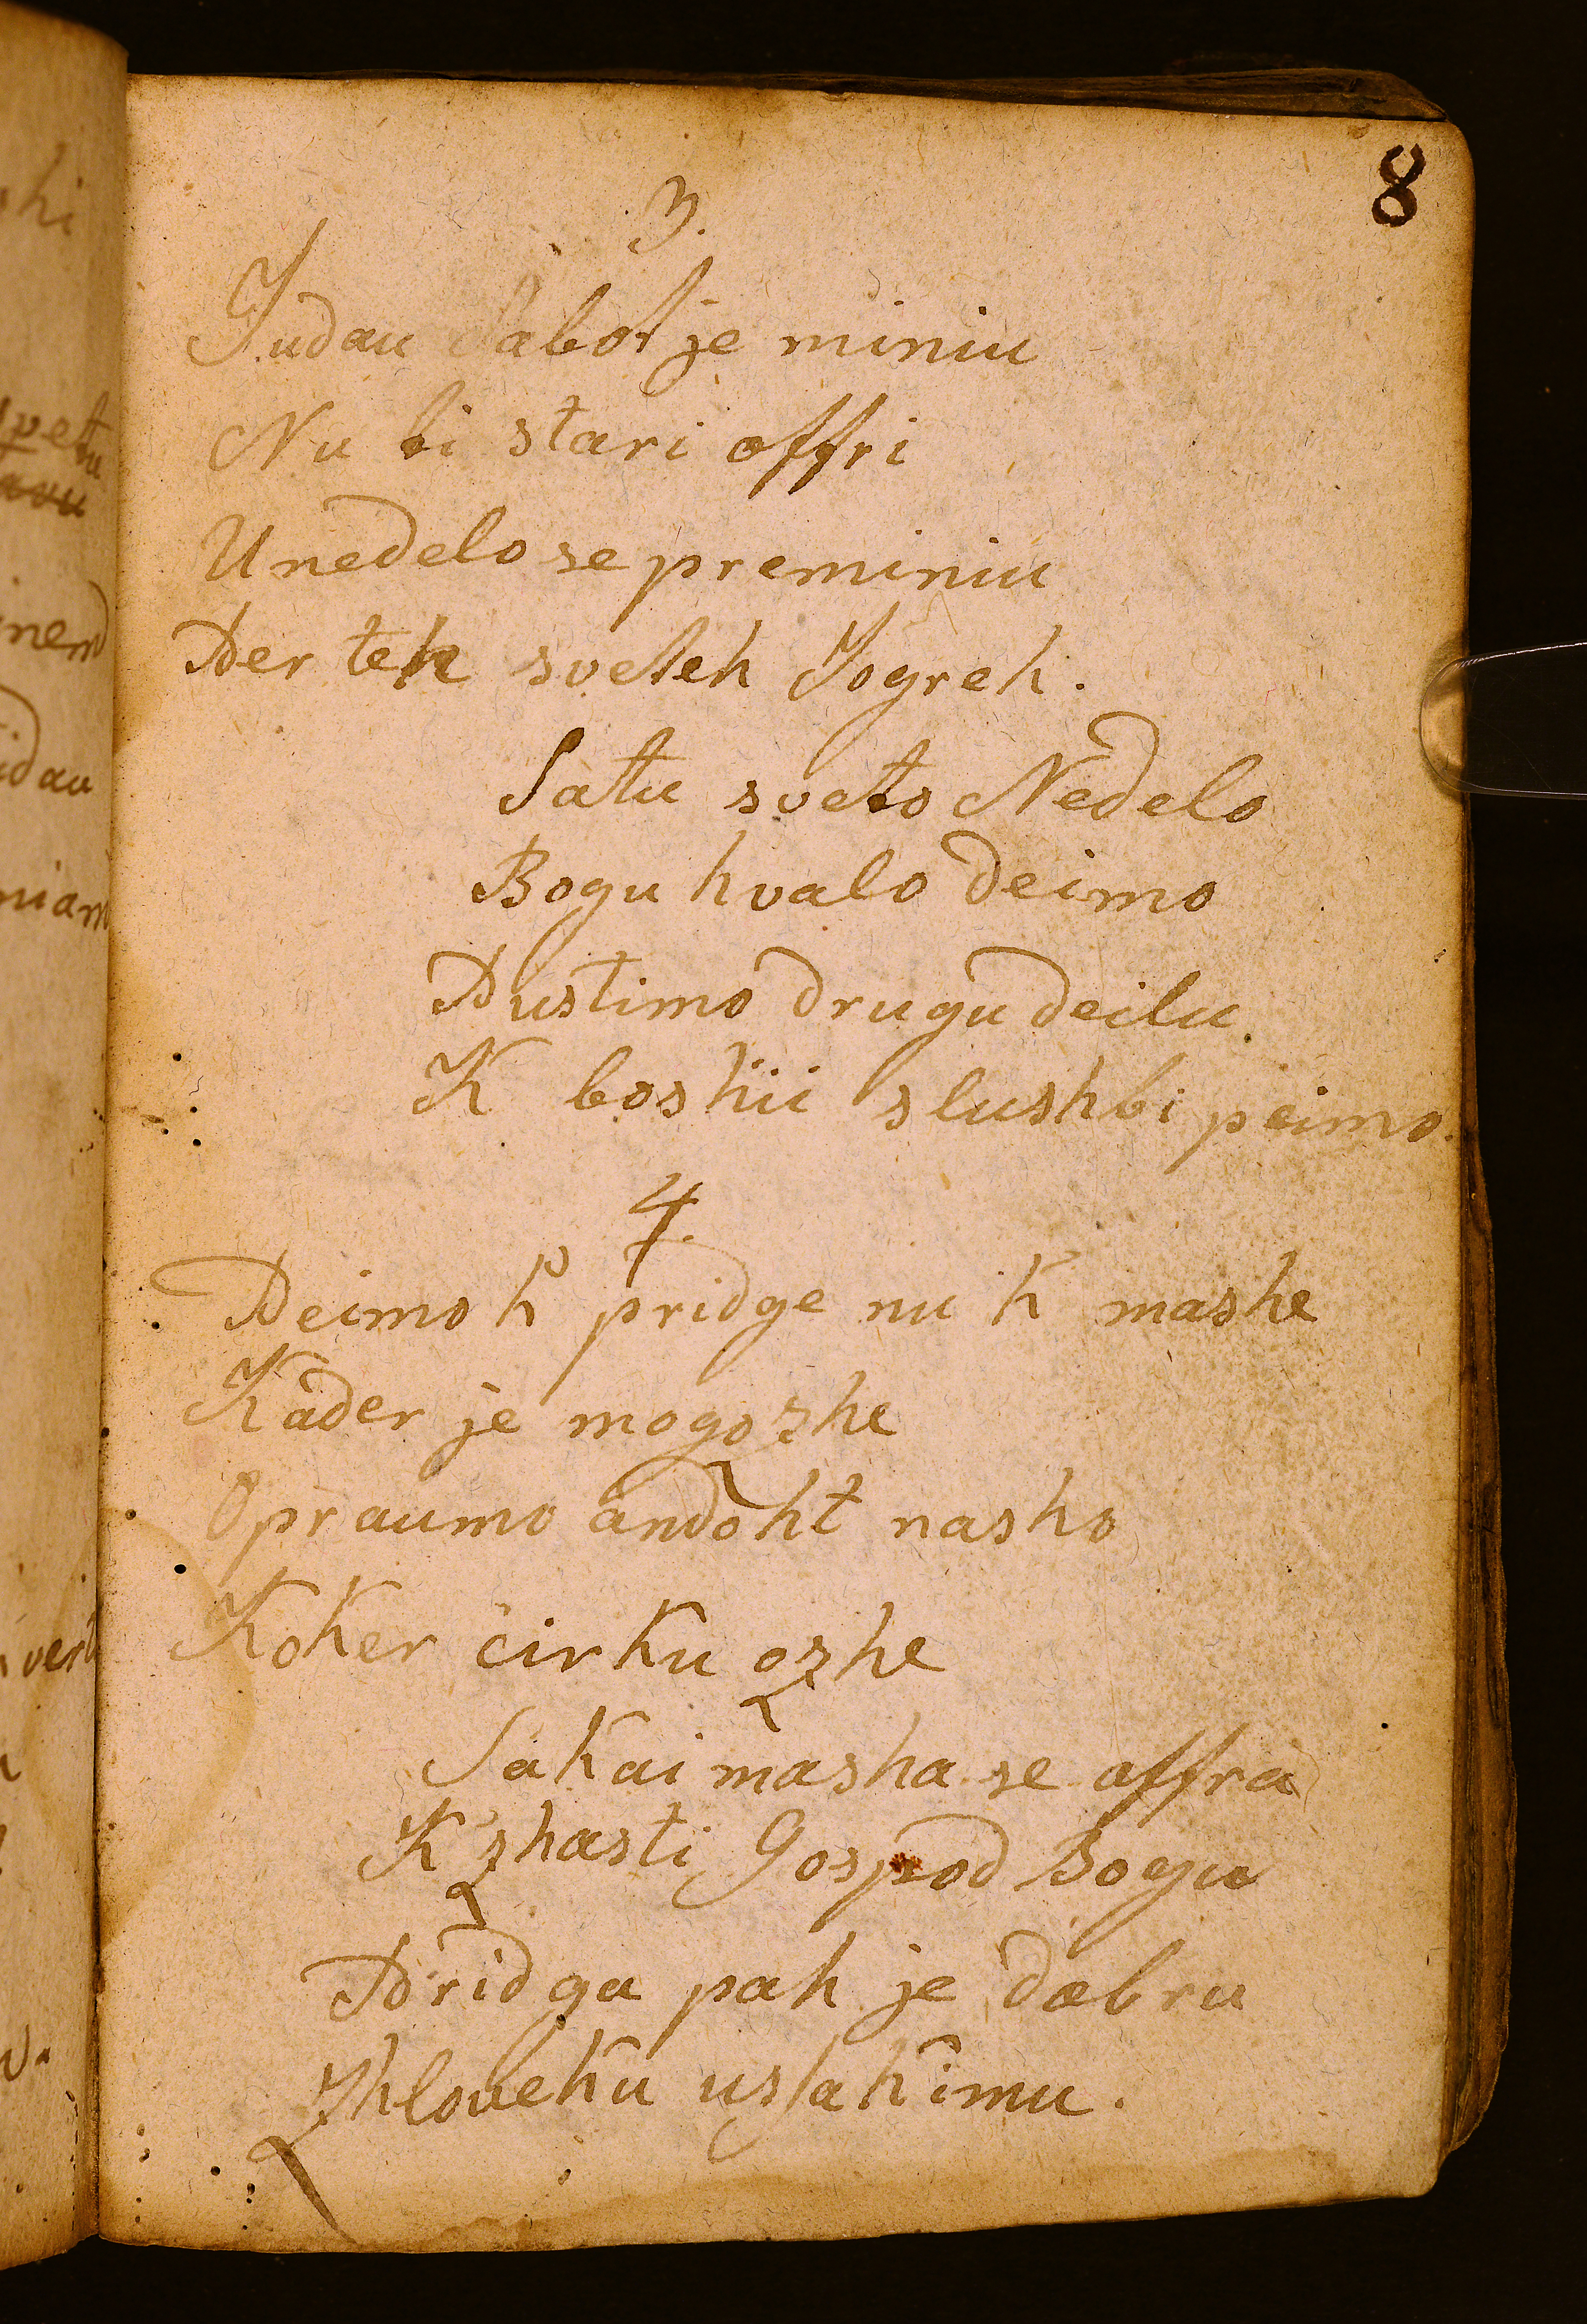 8
3.
Judau Sabot je miniu
Nu ti stari offri
U nedelo se preminiu
Per teh sveteh Jogreh.
Satu sveto Nedelo
Bogu hvalo deimo
Pustimo drugu deilu
K boshii slushbi peimo.
4.
Peimo k pridge nu k mashe
Kader je mogozhe
Opraumo andoht nasho
Koker cirku ozhe
Sakai masha se offra
K' zhasti Gospod Bogu
Pridga pak je dobru
Zhloveku uslakimu.